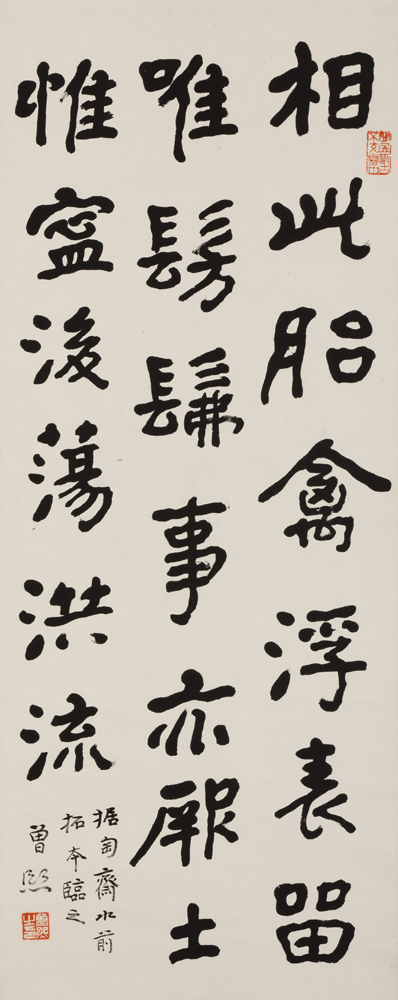 相此胎禽浮表留
唯髣髴事亦厥土
惟寍後蕩洪流
据匋齋水前
拓本臨之
曾熙